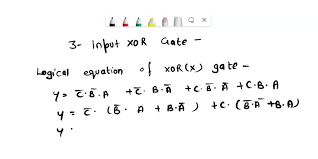 3- input XOR Gate -
Logical equation of XOR(X) gate -
y = C̅.B̅.A + C̅.B.A̅ + C.B̅.A̅ + C.B.A
y = C̅. (B̅. A + B.A̅) + C. (B̅.A̅ + B.A)
y .